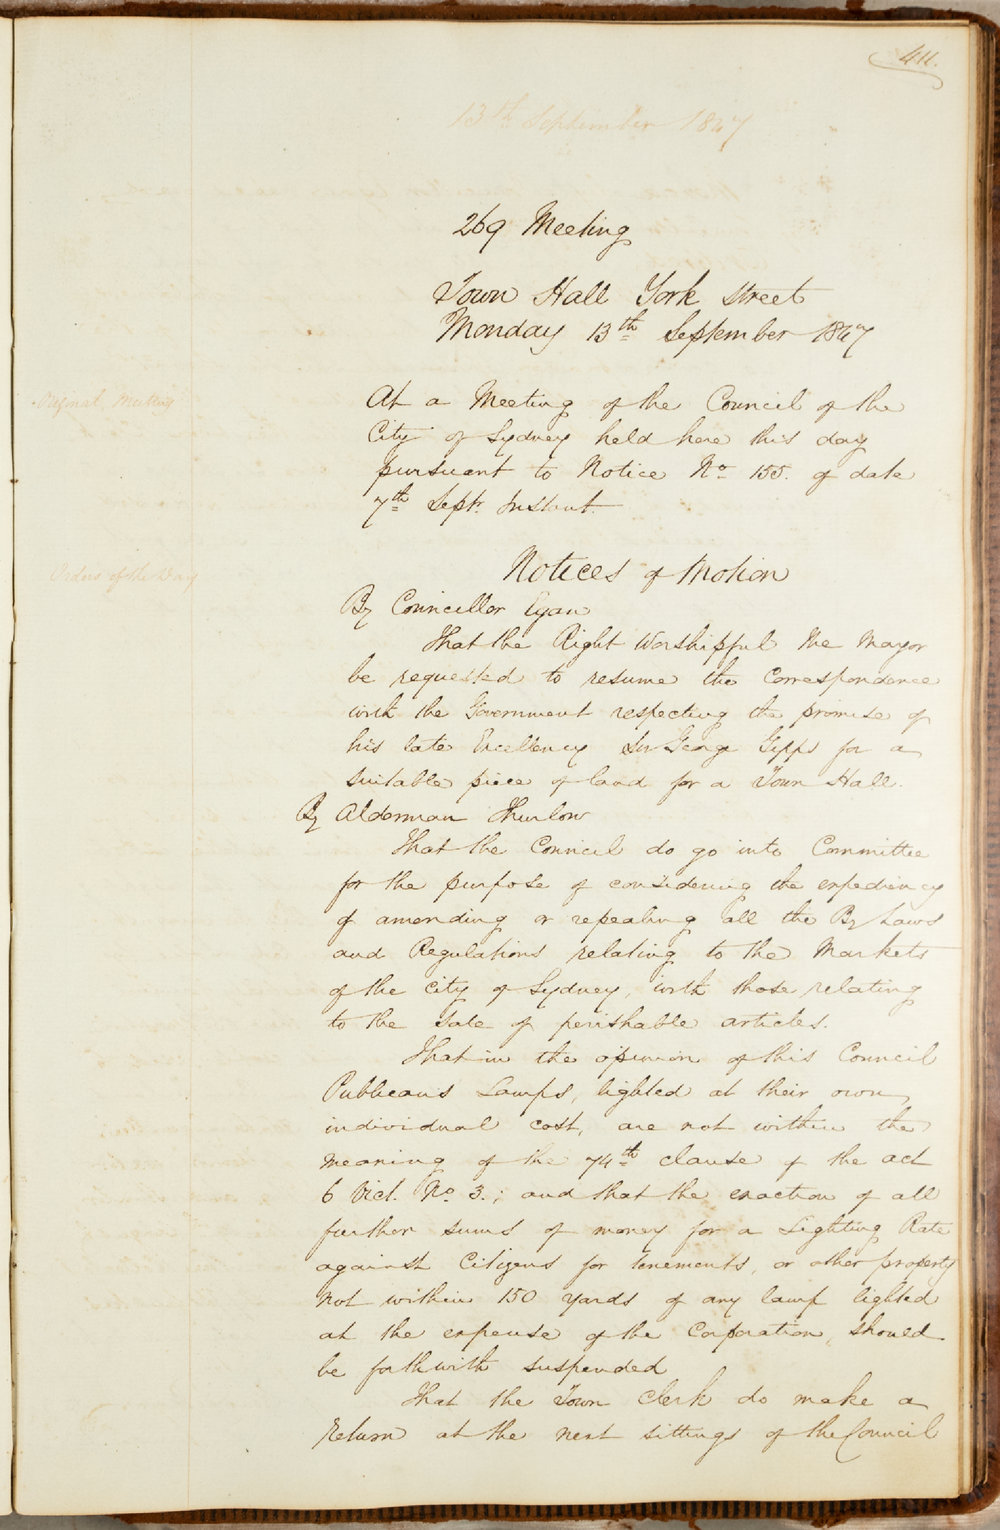 411.
13th September 1847
269 Meeting
Town Hall York Street
Monday 13th September 1847
Original Meeting
At a Meeting of the Council of the
City of Sydney held here this day
pursuant to Notice No 155. of date
7th Septr. Instant.
Orders of the Day
Notices of Motion
By Councillor Egan
That the Right Worshipful the Mayor
be requested to resume the Correspondence
with the Government respecting the promise of
his late Excellency Sir George Gipps for a
suitable piece of land for a Town Hall.
By Alderman Thurlow
That the Council do go into Committee
for the purpose of considering the expediency
of amending or repealing all the By Laws
and Regulations relating to the Markets
of the City of Sydney, with those relating
to the Sale of perishable articles.
That in the opinion of this Council
Publican's Lamps, lighted at their own
individual cost, are not within the
meaning of the 74th clause of the act
6 Vict. No. 3.; and that the exaction of all
further sums of money for a Lighting Rate
against Citizens for tenements, or other property
not within 150 yards of any lamp lighted
at the expense of the Corporation, should
be forthwith suspended
That the Town Clerk do make a
Return at the next sittings of the Council